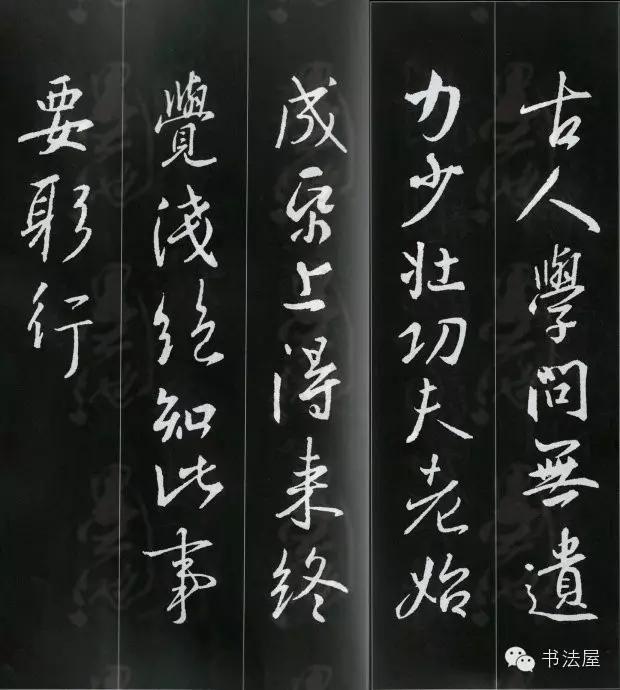 古人學問無遺
力少壯功夫老始
成帋上得来終
覺淺絶知此事
要躬行
书法屋